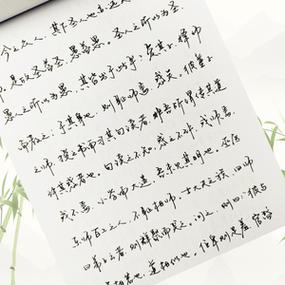 今之众人,其下圣人也亦远
是故圣益圣,愚益愚。圣人之所以为圣,
愚人之所以为愚,其皆出于此乎?爱其子,择师
而教之;于其身也,则耻师焉,惑矣。彼童子
之师,授之书而习其句读者,非吾所谓传其道
解其惑者也。句读之不知,惑之不解,或师焉,
或不焉,小学而大遗,吾未见其明也。巫医
乐师百工之人,不耻相师。士大夫之族,曰师
曰弟子云者,则群聚而笑之。问之,则曰:彼与
相若也,道相似也。位卑则足羞,官盛